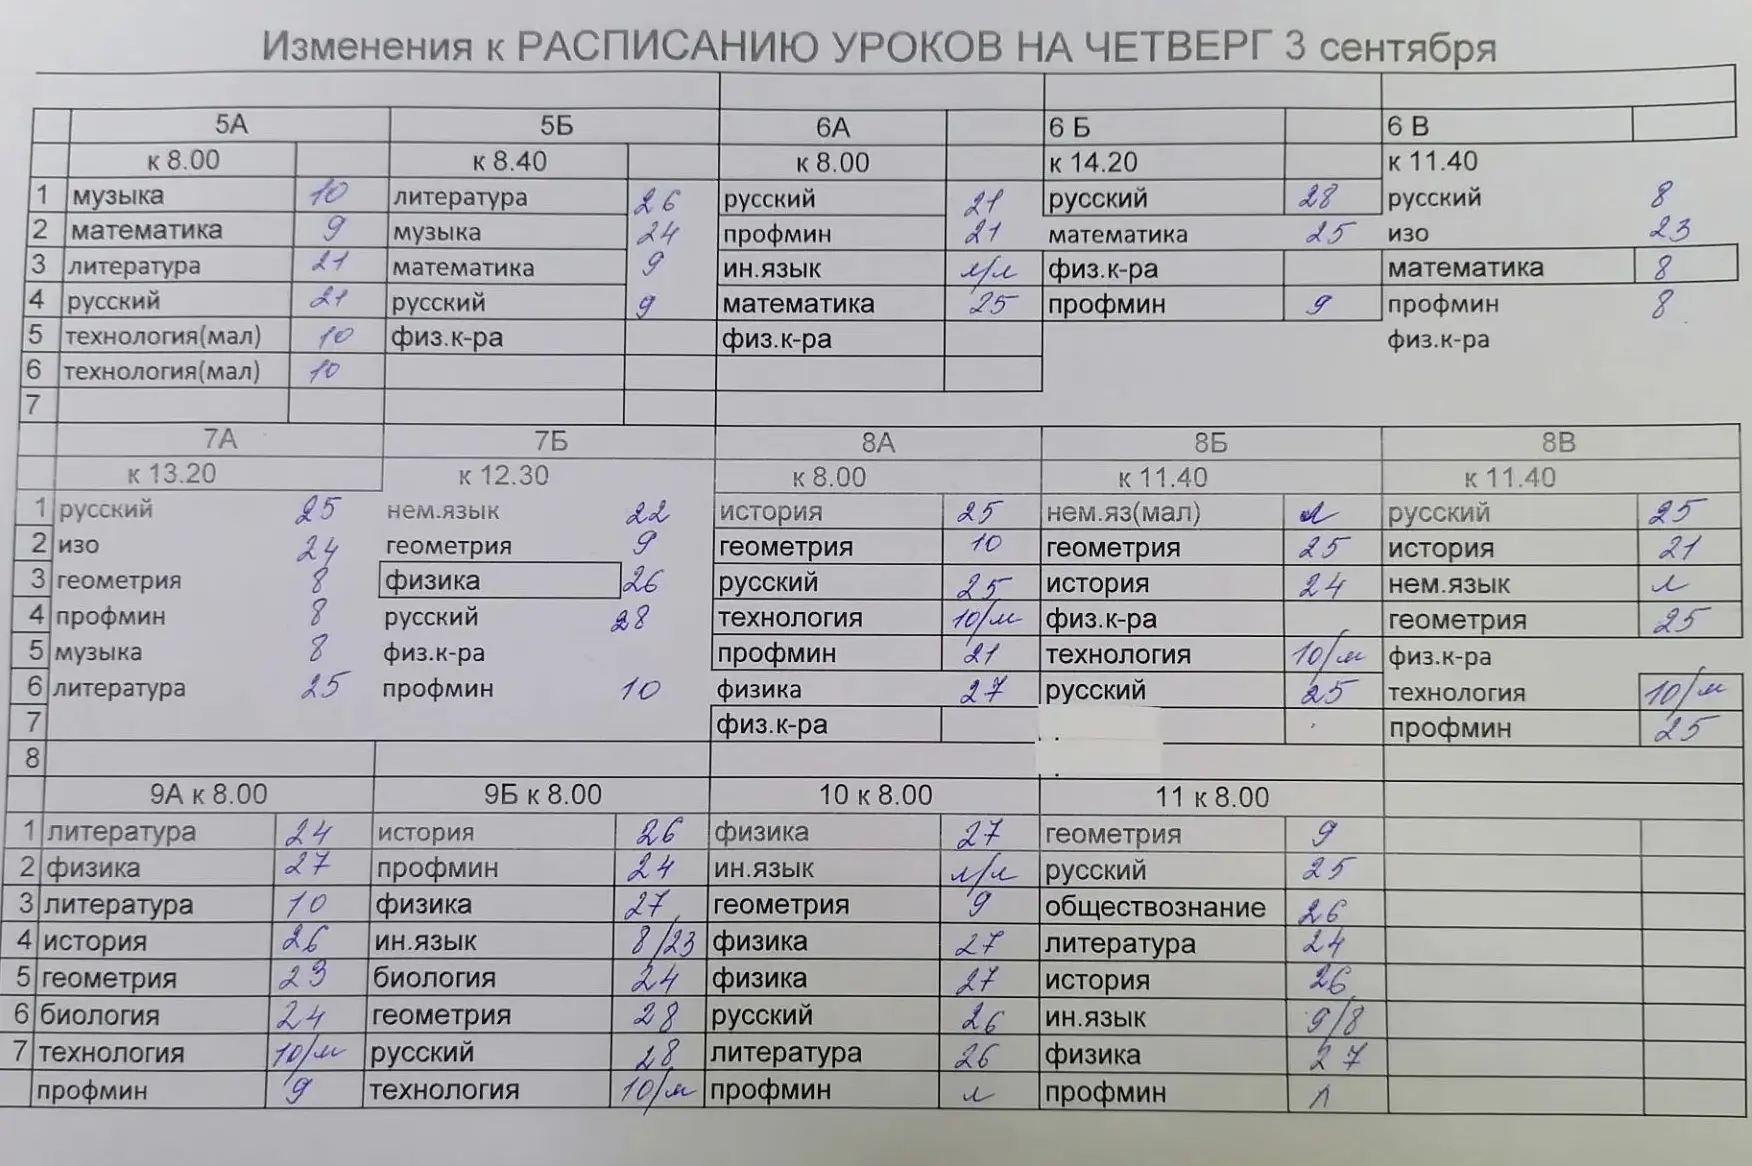 Изменения к РАСПИСАНИЮ УРОКОВ НА ЧЕТВЕРГ 3 сентября
5А 5Б 6А 6 Б 6 В
к 8.00 к 8.40 к 8.00 к 14.20 к 11.40
1 музыка 10 литература 26 русский 21 русский 28 русский 8
2 математика 9 музыка 24 профмин 21 математика 25 изо 23
3 литература 21 математика 9 ин.язык м/л физ.к-ра математика 8
4 русский 21 русский 9 математика 25 профмин 9 профмин 8
5 технология(мал) 10 физ.к-ра физ.к-ра физ.к-ра
6 технология(мал) 10
7
7А 7Б 8А 8Б 8В
к 13.20 к 12.30 к 8.00 к 11.40 к 11.40
1 русский 25 нем.язык 22 история 25 нем.яз(мал) русский 25
2 изо 24 геометрия 9 геометрия 10 геометрия 25 история 21
3 геометрия 8 физика 26 русский 25 история 24 нем.язык л
4 профмин 8 русский 28 технология 10/м физ.к-ра геометрия 25
5 музыка 8 физ.к-ра профмин 21 технология 10/м физ.к-ра
6 литература 25 профмин 10 физика 27 русский 25 технология 10/м
7 физ.к-ра профмин 25
8
9А к 8.00 9Б к 8.00 10 к 8.00 11 к 8.00
1 литература 24 история 26 физика 27 геометрия 9
2 физика 27 профмин 24 ин.язык м/л русский 25
3 литература 10 физика 27 геометрия 9 обществознание 26
4 история 26 ин.язык 8/23 физика 27 литература 24
5 геометрия 23 биология 24 физика 27 история 26
6 биология 24 геометрия 28 русский 26 ин.язык 9/8
7 технология 10/м русский 28 литература 26 физика 27
профмин 9 технология 10/м профмин л профмин л